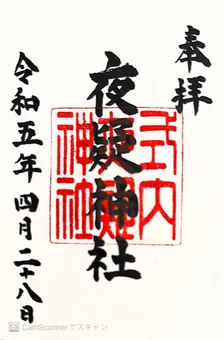 奉拝
夜疑神社
式内
夜疑
神社
令和五年四月二十八日
CS CamScannerでスキャン